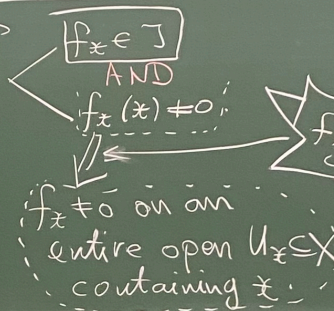 f_x ∈ J
AND
f_x (x) ≠ 0
f
f_x ≠ 0 on an
entire open U_x ⊆ X
containing x.